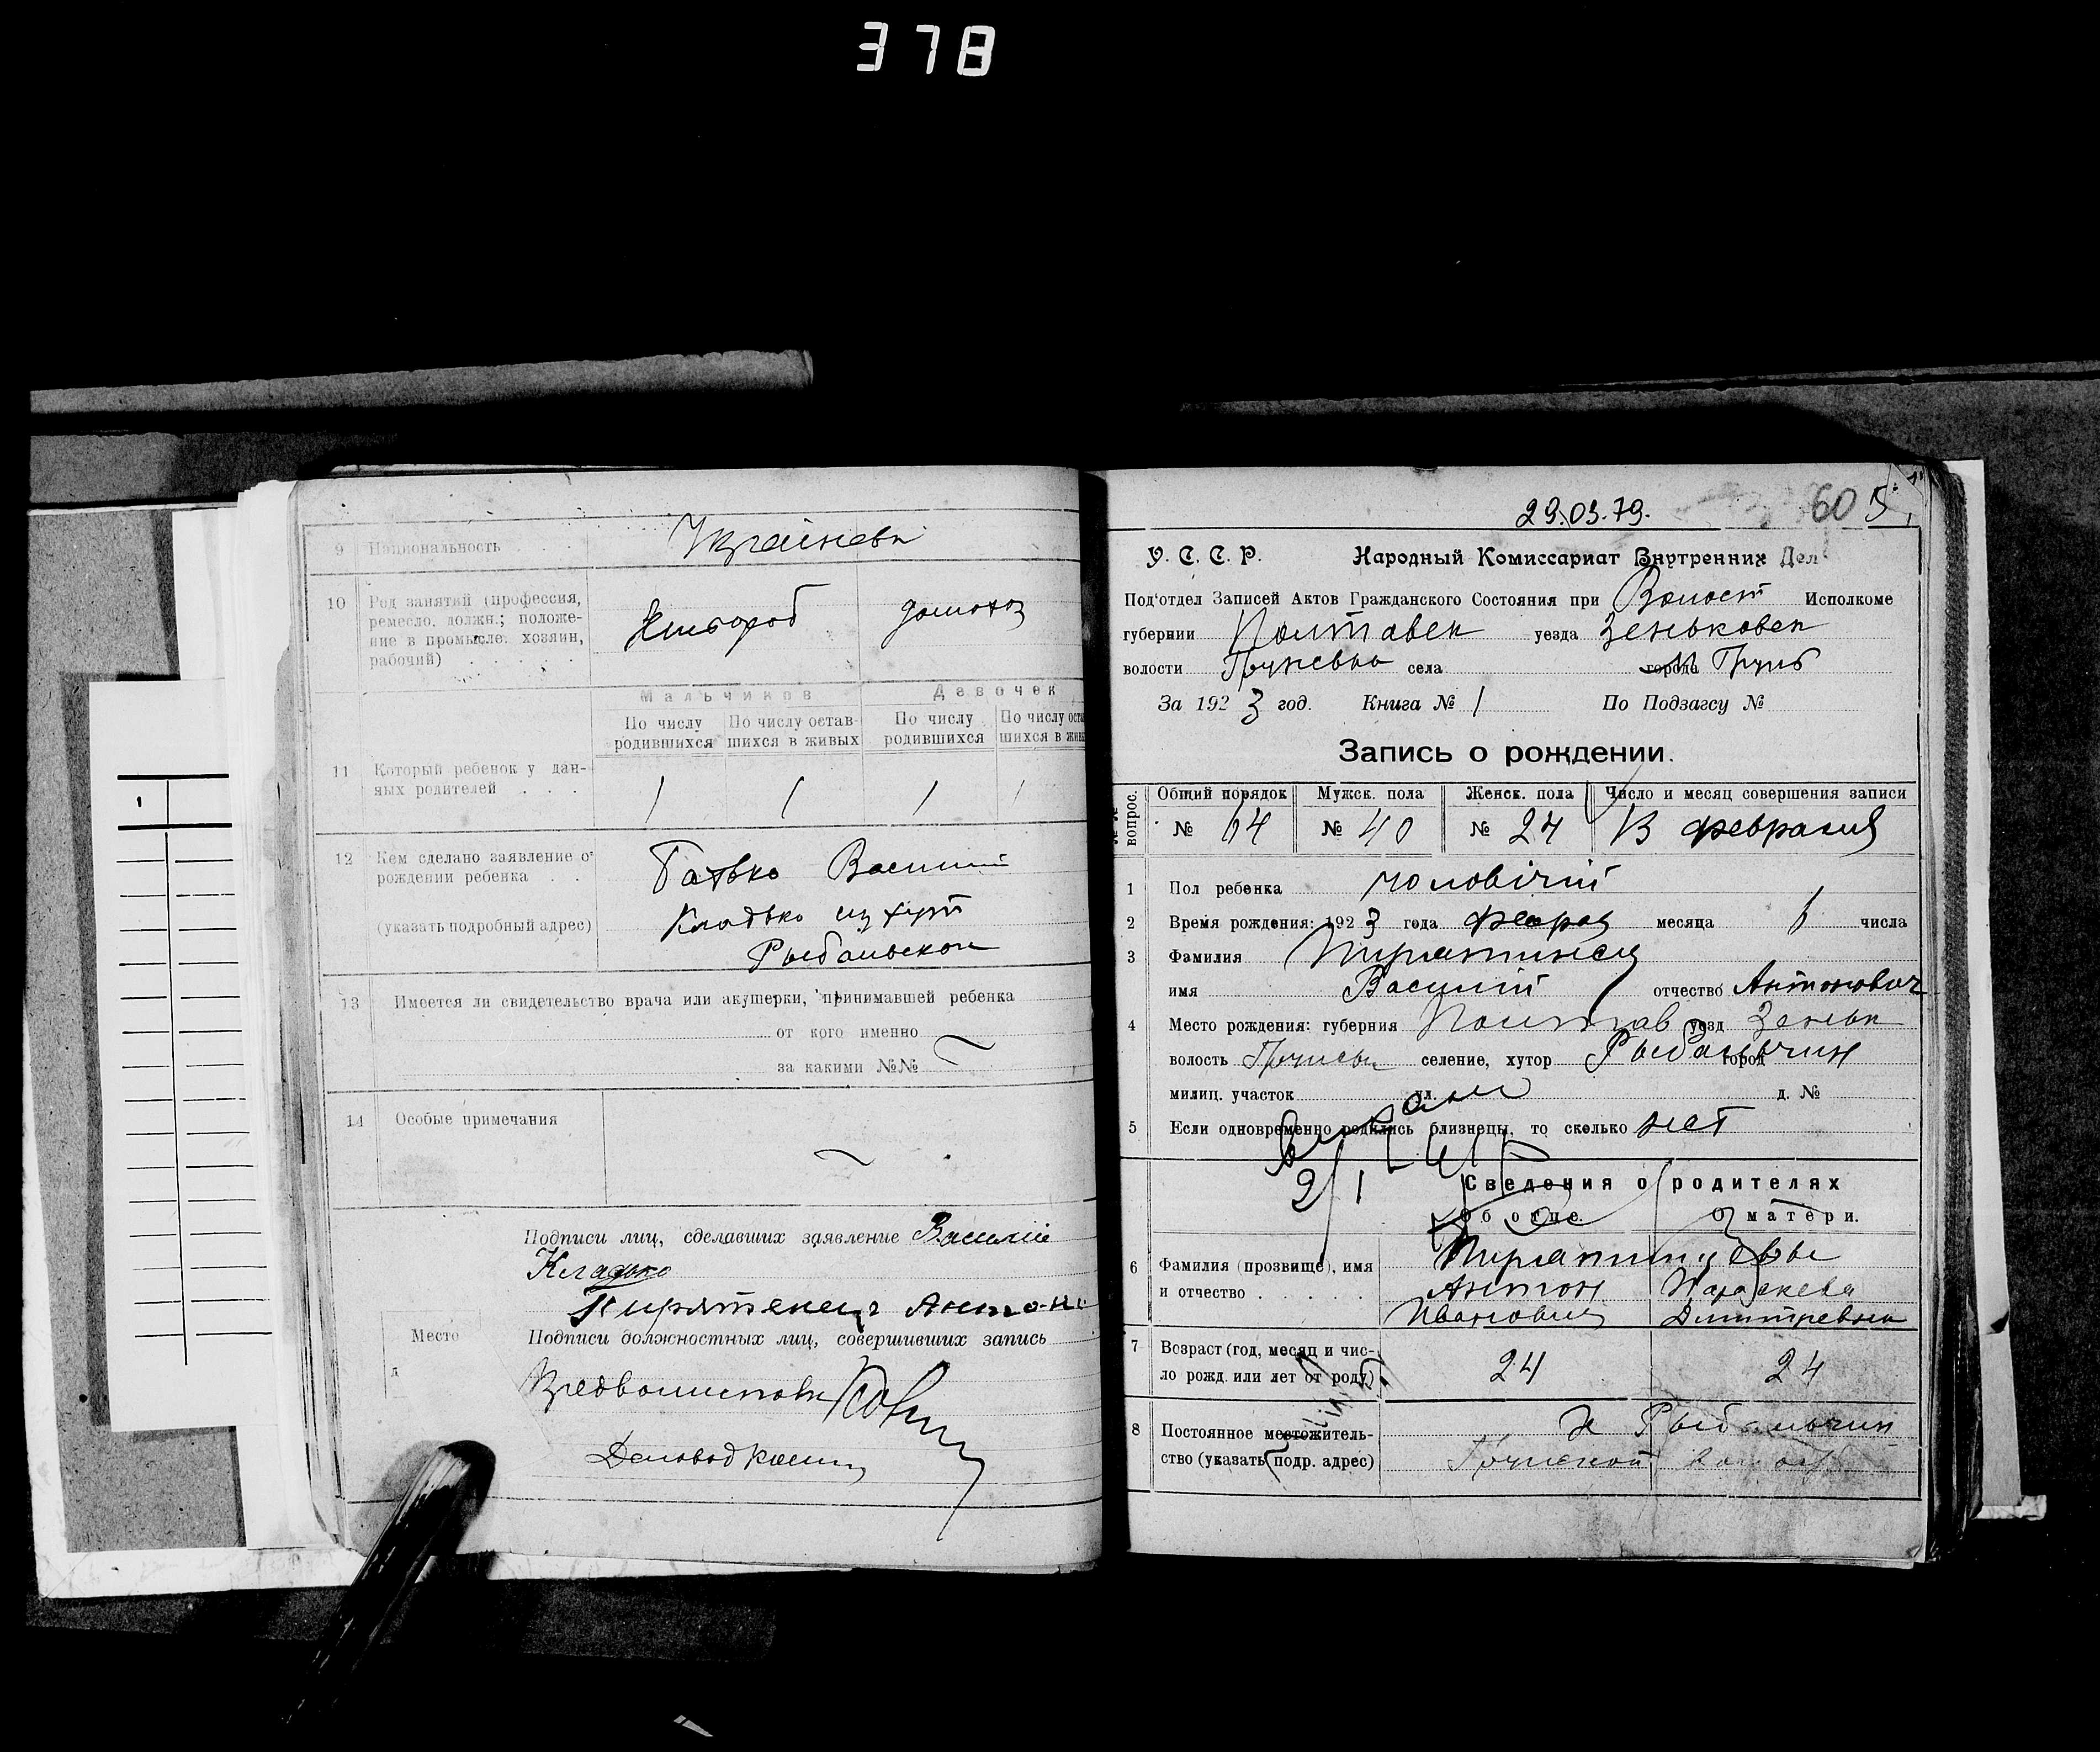 378
9 Национальность Украінськ
10 Род занятий (профессия,
ремесло, должн.; положе-
ние в промысле: хозяин,
рабочий)
Хлибороб домохоз
Мальчиков Девочек
По числу родившихся По числу остав-шихся в живых По числу родившихся По числу оста шихся в живы
11 Который ребенок у дан-
ных родителей
1 1 1 1
12 Кем сделано заявление о
рождении ребенка
(указать подробный адрес)
Батько Василий
Кладько из хут
Рыбальскои
13 Имеется ли свидетельство врача или акушерки, принимавшей ребенка
от кого именно
за какими №№
14 Особые примечания
Подписи лиц, сделавших заявление Василий
Кладько
Пирятенец Антон
Место
Подписи должностных лиц, совершивших запись
д
Деловод
29.03.79. 60
У. С. С. Р. Народный Комиссариат Внутренних Дел
Под'отдел Записей Актов Гражданского Состояния при Волост Исполкоме
губернии Полтавск уезда Зеньковск
волости Грунсько села города м Грунь
За 1923 год. Книга № 1 По Подзагсу №
Запись о рождении.
вопрос.
Общий порядок Мужск. пола Женск. пола Число и месяц совершения записи
№ 64 № 40 № 24 13 февраля
1 Пол ребенка чоловічий
2 Время рождения: 1923 года февраля месяца 6 числа
3 Фамилия Пирятинец
имя Василий отчество Антонович
4 Место рождения: губерния Полтав уезд Зеньк
волость Грунськ селение, хутор Рыбальчин город
милиц. участок ул. д. №
5 Если одновременно родились близнецы, то сколько нет
2/1
Сведения о родителях
Об отце. О матери.
6 Фамилия (прозвище), имя
и отчество
Пирятинцевы
Антон Параскева
Иванович Дмитревна
7 Возраст (год, месяц и чис-
ло рожд. или лет от роду)
24 24
8 Постоянное местожитель-
ство (указать подр. адрес)
х Рыбальчин
Грунской волост